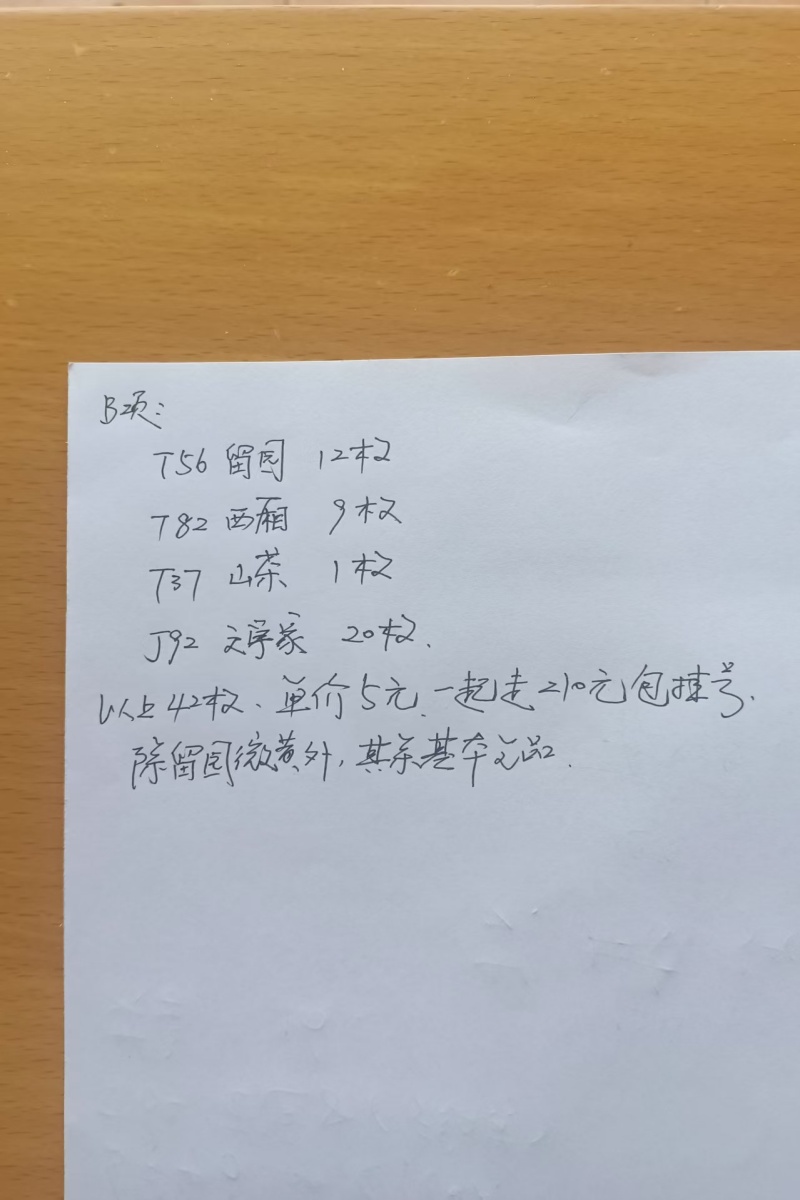 B项:
T56 留园 12枚
T82 西厢 9枚
T37 山茶 1枚
J92 文学家 20枚.
以上42枚、单价5元、一起走210元包挂号.
除留园微黄外,其余基本全品.